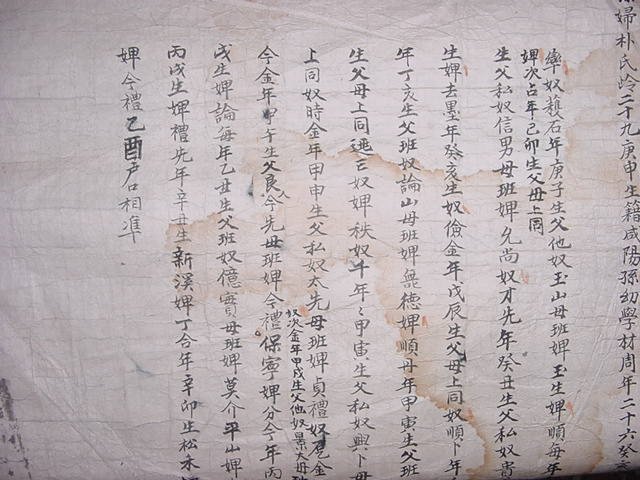 婦朴氏岭二十九庚申生籍咸陽孫幼學材周年二十六癸
率奴䕶石年庚子生父他奴玉山母班婢玉生婢順每年
婢次占年己卯生父母上同
生父私奴信男母班婢允尚奴才先年癸丑生父私奴貴
生婢去墨年癸亥生奴儉金年戊辰生父母上同奴順卜年
年丁亥生父班奴論山母班婢無德婢順母年甲寅生父班
生父母上同 奴婢秩奴千年年甲寅生父私奴興卜母
上同奴時金年甲申生父私奴太先母班婢貞禮奴 金
奴次金年甲戌生父他奴景大母
今金年甲午生父良今先母班婢今禮保寧婢分今年丙
戌生婢論每年乙丑生父班奴億實母班婢莫介平山婢
丙戌生婢禮先年辛丑生新溪婢丁今年辛卯生松禾
婢今禮乙酉戶口相準